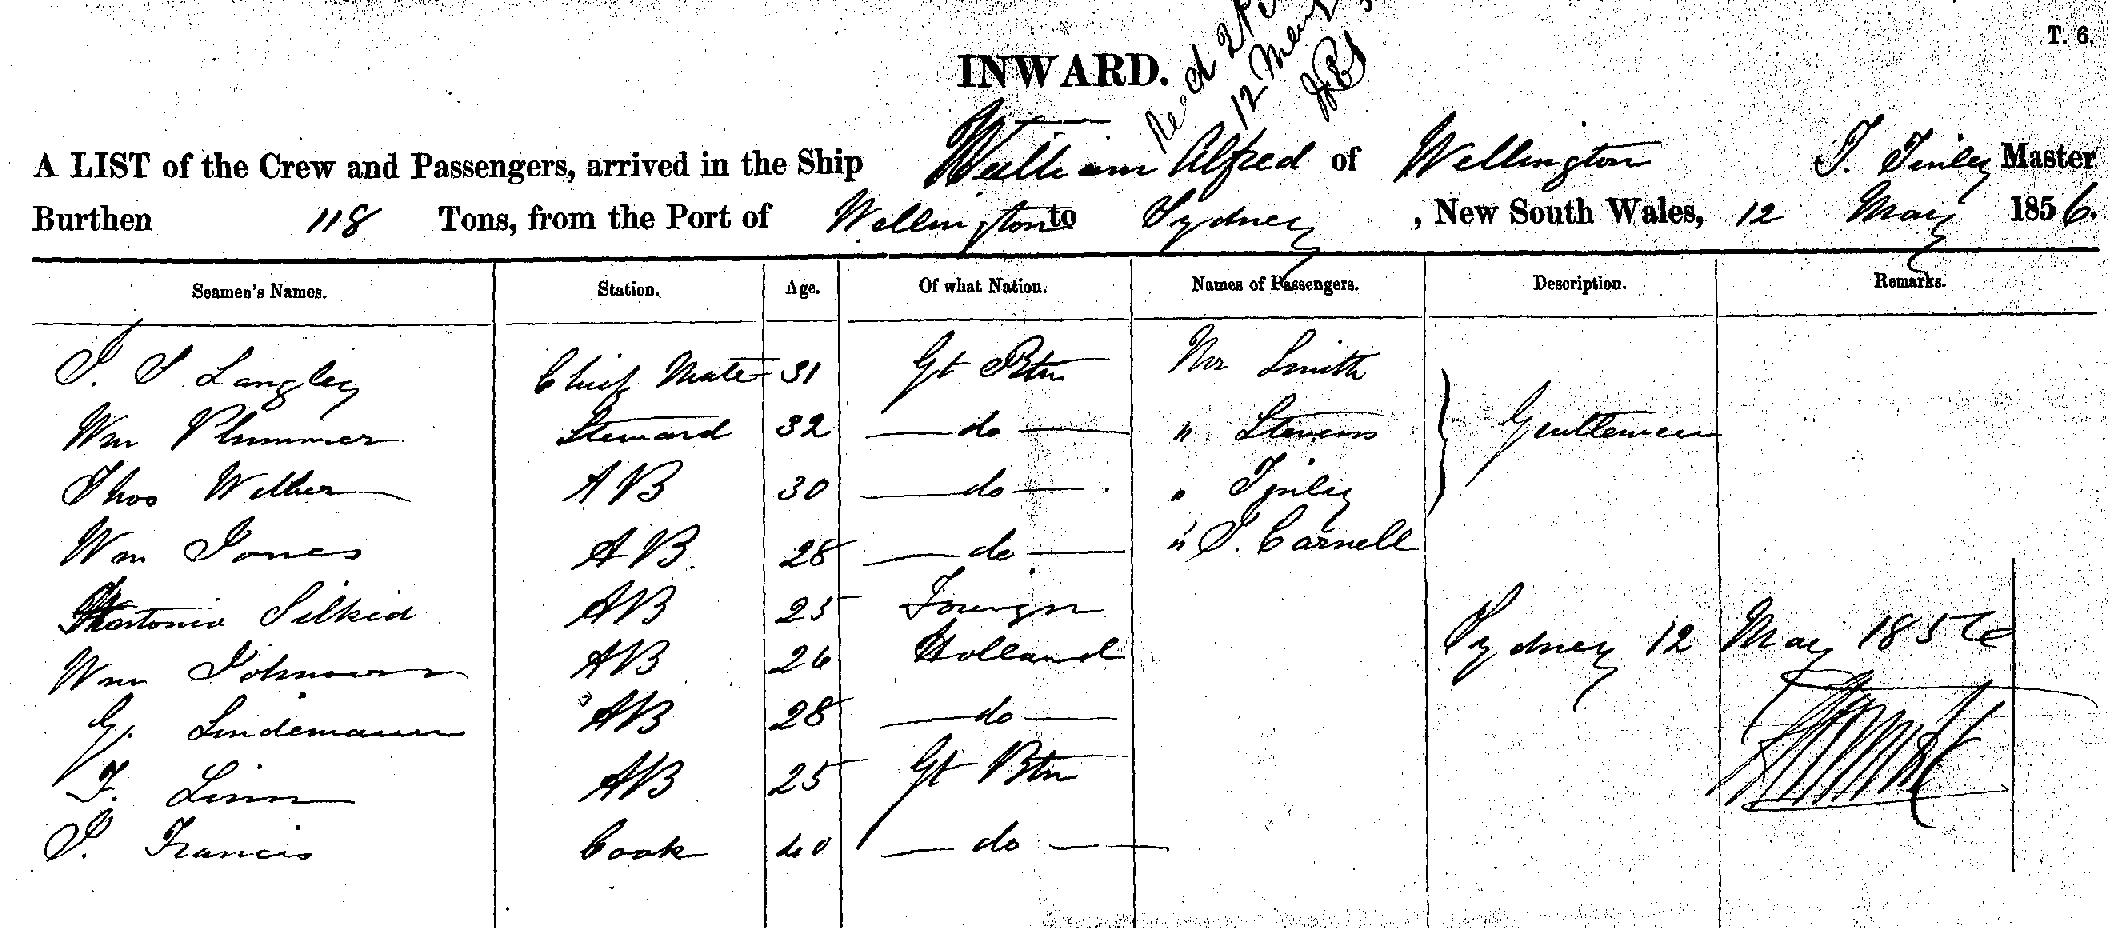 T. 6.
INWARD.
12
A LIST of the Crew and Passengers, arrived in the Ship William Alfred of Wellington T. Tinley Master
Burthen 118 Tons, from the Port of Wellington to Sydney, New South Wales, 12 May 1856.
Seamen's Names. Station. Age. Of what Nation. Names of Passengers. Description. Remarks.
J. S. Langley Chief Mate 31 Gt Btn Mr Smith
Wm Plummer Steward 32 — do — " Stevens Gentlemen
Thos AB 30 — do — " Tinley
Wm Jones AB 28 — do — " J. Carnell
Silkid AB 25 Foreign
Wm Johnson AB 26 Holland Sydney 12 May 1856
G. Lindemann AB 28 — do —
F. Linn AB 25 Gt Btn
J. Francis Cook 40 — do —